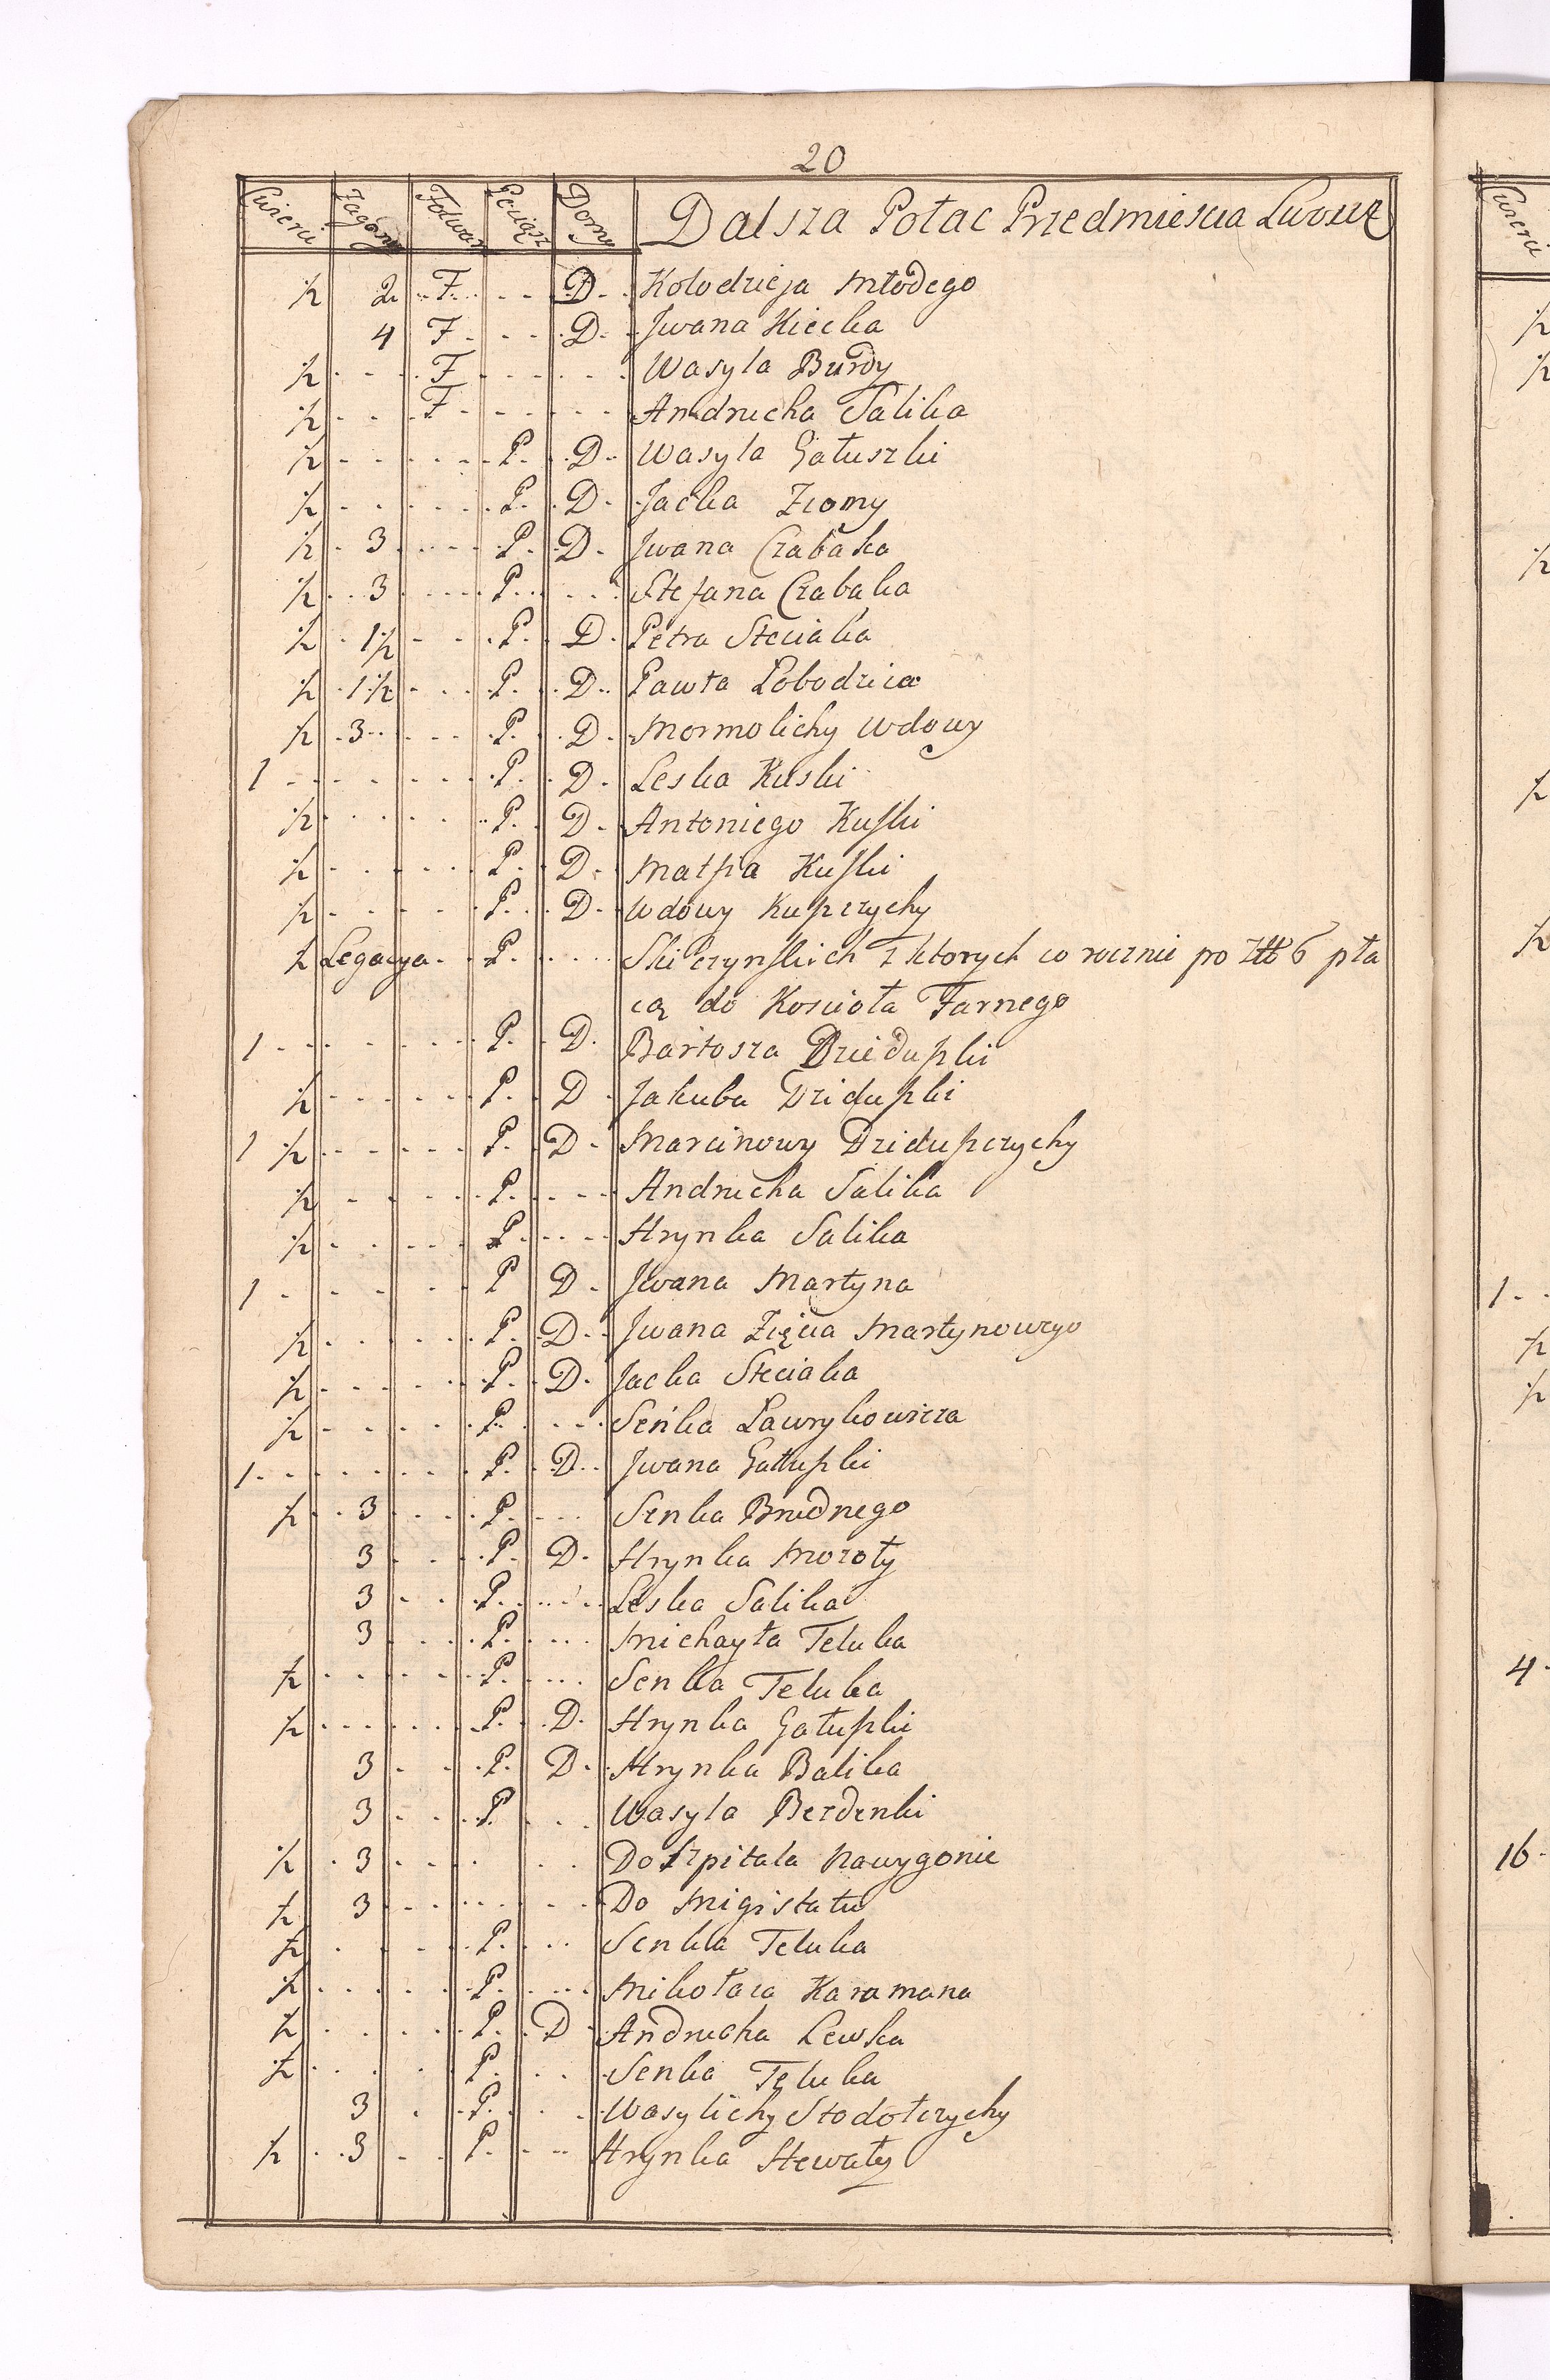 20
Cwierci Zagony Folwar Pociąg Domy Dalsza Połac Przedmiescia Lwowz
1/2 2 F D Kolodzieja Młodego
4 F D Jwana Kiecka
1/2 F Wasyla Burdy
1/2 F Andrucha Salika
1/2 P. D Wasyla Gałuszki
1/2 P. D Jacka Ziomy
1/2 3 P. D Jwana Czabaka
1/2 3 P. Stefana Czabaka
1/2 1 1/2 P. D Petra Steciaka
1/2 1 1/2 P. D Pawła Lobodzica
1/2 3 P. D Mormolichy Wdowy
1 P. D Leska Kuski
1/2 P. D Antoniego Kuski
1/2 P. D Matsia Kuski
1/2 P. D Wdowy Kupczychy
1/2 Legacya P. Skiczynskich z ktorych co rocznie po Złł 6 pła
cą do Kosciola Farnego
1 P. D. Bartosza Dziduszki
1/2 P. D Jakuba Dziduszki
1 1/2 P. D Marcinowy Dziduszczychy
1/2 P. Andrucha Salika
1/2 P. Hrynka Salika
1 P D Jwana Martyna
1/2 P. D Jwana Zięcia Martynowego
1/2 P. D. Jacka Steciaka
1/2 P. Seńka Lawrykowicza
1 P. D Jwana Gałuszki
1/2 3 P. Senka Brudnego
3 P. D Hrynka Mozoły
3 P. Leska Salika
3 P. Michayła Teluka
1/2 P. Senka Teluka
1/2 P. D. Hrynka Gałuszki
3 P. D Hrynka Balika
3 P Wasyla Berdenki
1/2 3 Do Szpitala Nawygonie
1/2 3 Do Migistatu
1/2 P. Senka Teluka
1/2 P. Mikołaia Karamana
1/2 P. D Andrucha Lewka
1/2 P. Senka Teluka
3 P. Wasylichy Stodolczychy
1/2 3 P. Hrynka Stewały
Cwierci
1/2
1/2
1/2
1/2
1/2
1
1/2
1/2
4
16